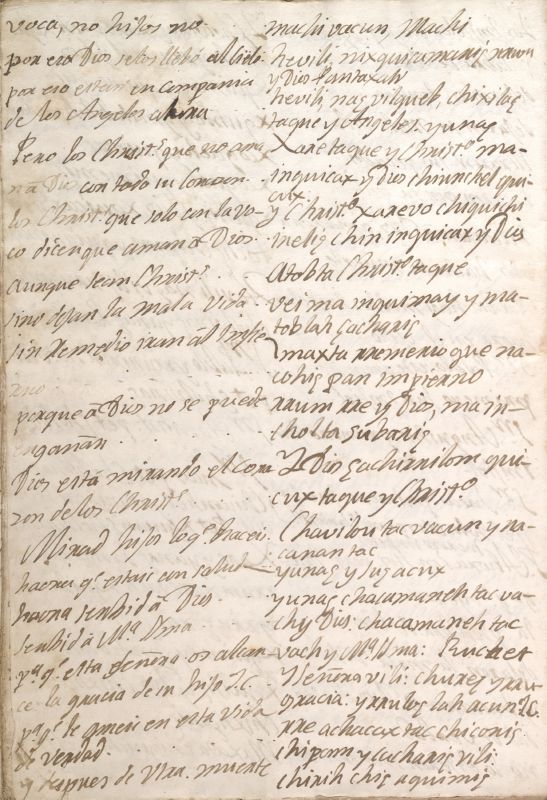 voca, no hijos no
por eso Dios se los llebó al Cielo
por eso estan en compania
de los Angeles ahora
Pero los Christ.s que no ama
n a Dios con todo su Corason
los Christ.s que solo con la vo-
ca dicen que aman a Dios
aunque sean Christ.s
sino dejan la mala vida
sin Remedio iran al Infie
rno
porque a Dios no se puede
engañan
Dios está mirando el cora
zon de los Christ.s
Mirad hijos lo q.e haceis
haora q.e estais con salud
haora serbid a Dios
serbid a M.a Vma
p.a q.e esta señora os alcan-
ce la gracia de su hijo J.C.
p.a q.e le gozeis en esta vida
de verdad
y despues de Vra. muerte
machi vacun, Machi
hevili, nixquiramanis
y Dios
hevili, nas vilqueh, chixilas
taque y Angeles. yunas
Xare taque y Christ.o ma-
inquicax y Dios chiunchel iqui-
cux
y Christ.o xarevo chiquichi
inelis chin inquicax y Dios
Atobta Christ.o taque
vei ma inquimay y ma-
toblah cacharis
maxta rremerio que na-
cohis pan impierno
rrum rre y Dios, ma in-
cholta subaris
Y Dios cachirnilom qui-
cux taque y Christ.o
Chavilou tac vacun y na-
canan tac
yunas y lus acux
yunas chacamaneh tac va-
chy Dios: chacamaneh tac
vach y M.a Vma: Ruchet
y señora vili: churey
gracia: lah acun J.C.
rre achacax tac chiconis
chipam y cacharis vili
chirih chis aquimis